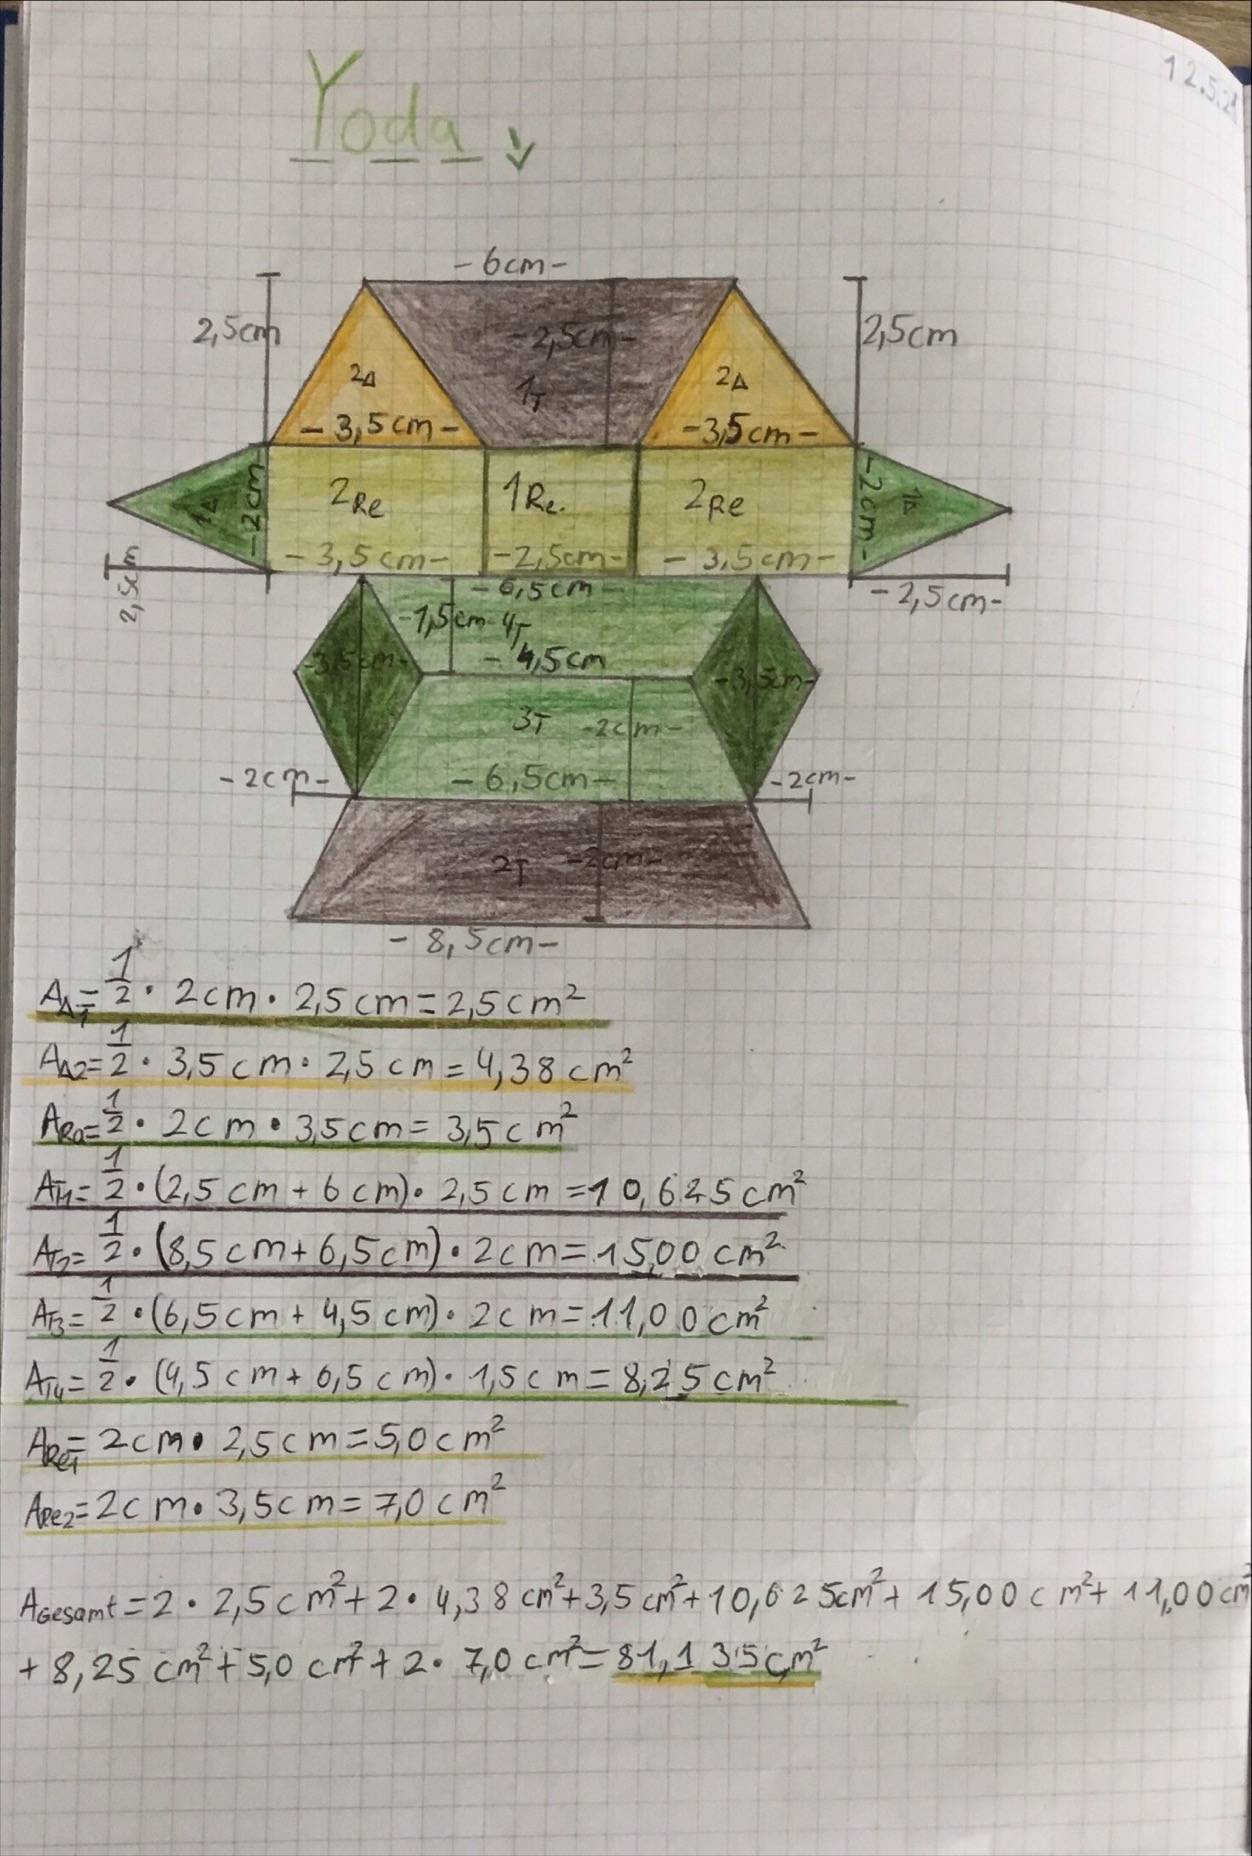 12.5.21
Yoda ↓
-6cm-
2,5cm
2,5cm
-2,5cm-
2Δ
1T
2Δ
-3,5cm-
-3,5cm-
1Δ
-2cm-
2Re
1Re.
2Re
-2cm-
1Δ
-3,5cm-
-2,5cm-
-3,5cm-
2,5cm
-2,5cm-
-6,5cm-
-1,5cm-
4T
-4,5cm
-3,5cm-
-3,5cm-
3T
-2cm-
-2cm-
-6,5cm-
-2cm-
2T
-2cm-
-8,5cm-
AΔ1=1/2·2cm·2,5cm=2,5cm²
AΔ2=1/2·3,5cm·2,5cm=4,38cm²
ARa=1/2·2cm·3,5cm=3,5cm²
AT1=1/2·(2,5cm+6cm)·2,5cm=10,625cm²
AT2=1/2·(8,5cm+6,5cm)·2cm=15,00cm²
AT3=1/2·(6,5cm+4,5cm)·2cm=11,00cm²
AT4=1/2·(4,5cm+6,5cm)·1,5cm=8,25cm²
ARe1=2cm·2,5cm=5,0cm²
ARe2=2cm·3,5cm=7,0cm²
AGesamt=2·2,5cm²+2·4,38cm²+3,5cm²+10,625cm²+15,00cm²+11,00cm²
+8,25cm²+5,0cm²+2·7,0cm²=81,135cm²